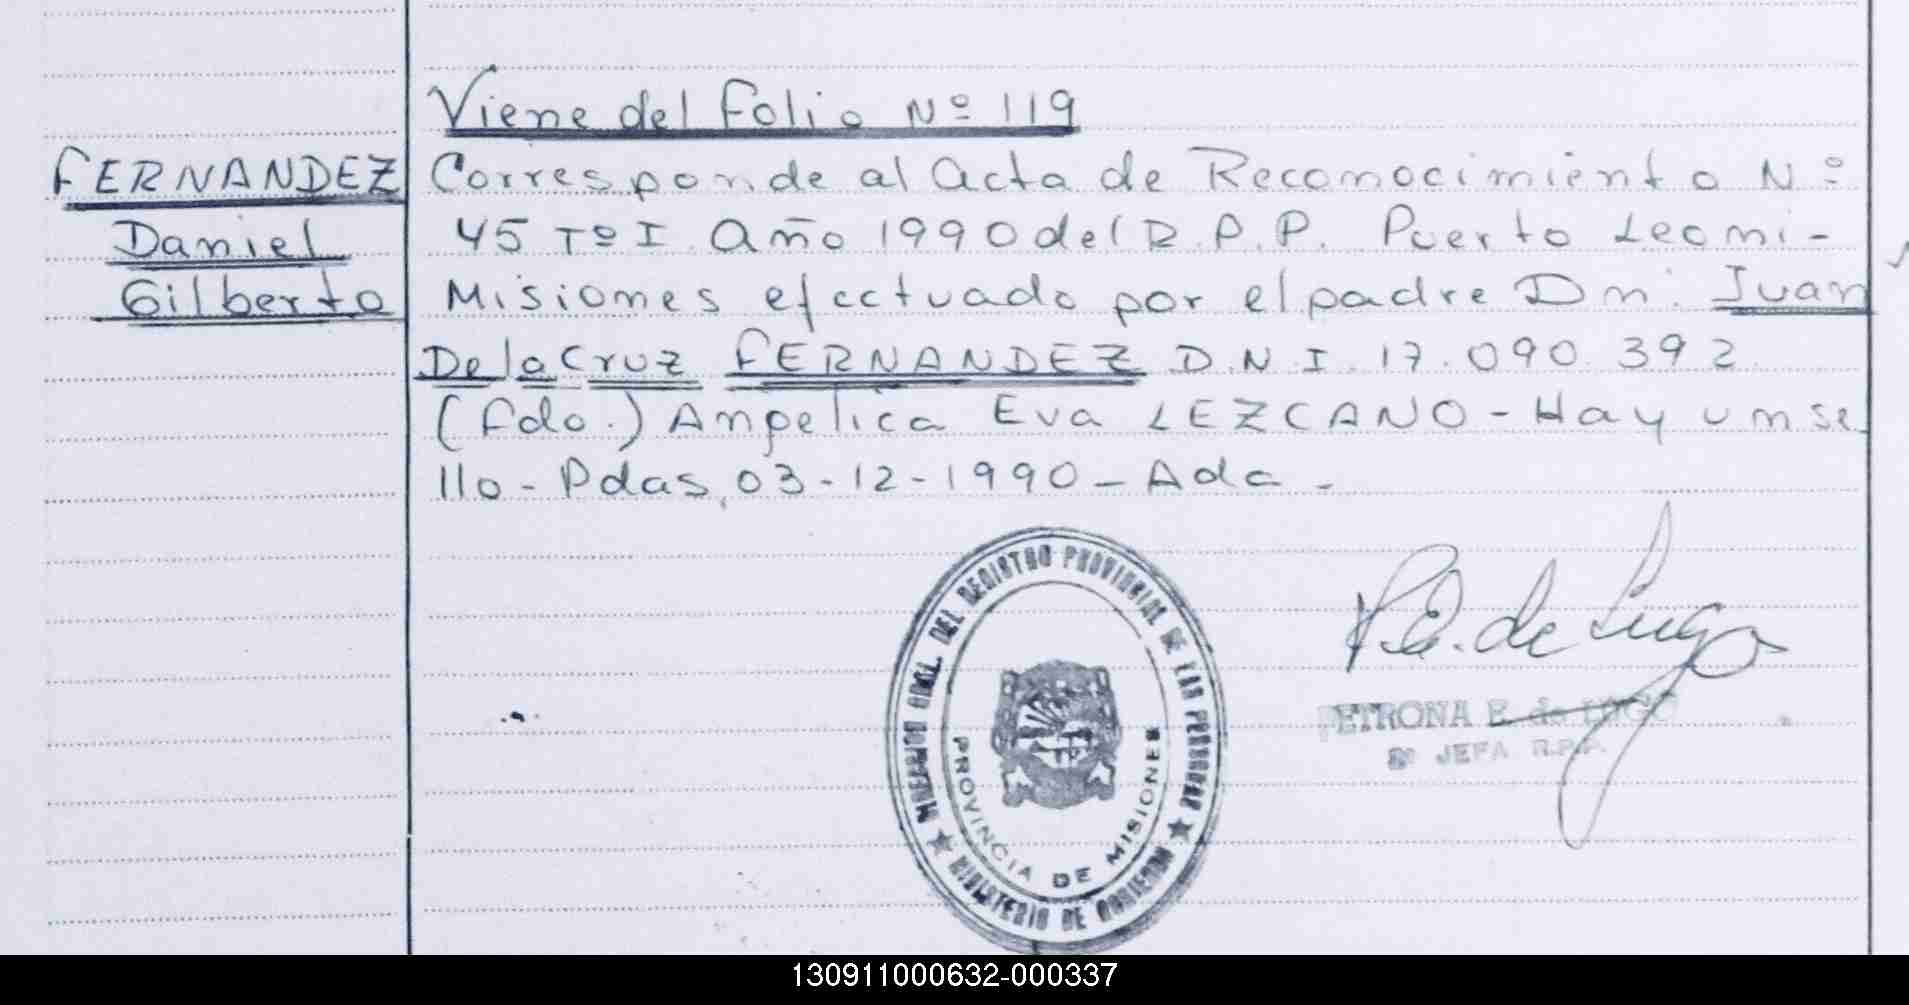 Viene del Folio Nº 119
FERNANDEZ
Daniel
Gilberto
Corresponde al acta de Reconocimiento Nº
45 Tº I. Año 1990 del R.P.P. Puerto Leoni-
Misiones efectuado por el padre Dn. Juan
De la Cruz FERNANDEZ D.N.I. 17.090.392
(Fdo.) Angelica Eva LEZCANO - Hay un se
llo - Pdas, 03-12-1990 - Ada -
DIRECCION GRAL. DEL REGISTRO PROVINCIAL DE LAS PERSONAS
PROVINCIA DE MISIONES
MINISTERIO DE GOBIERNO
P.E. de Lugo
PETRONA E. de LUGO
JEFA R.P.P.
130911000632-000337